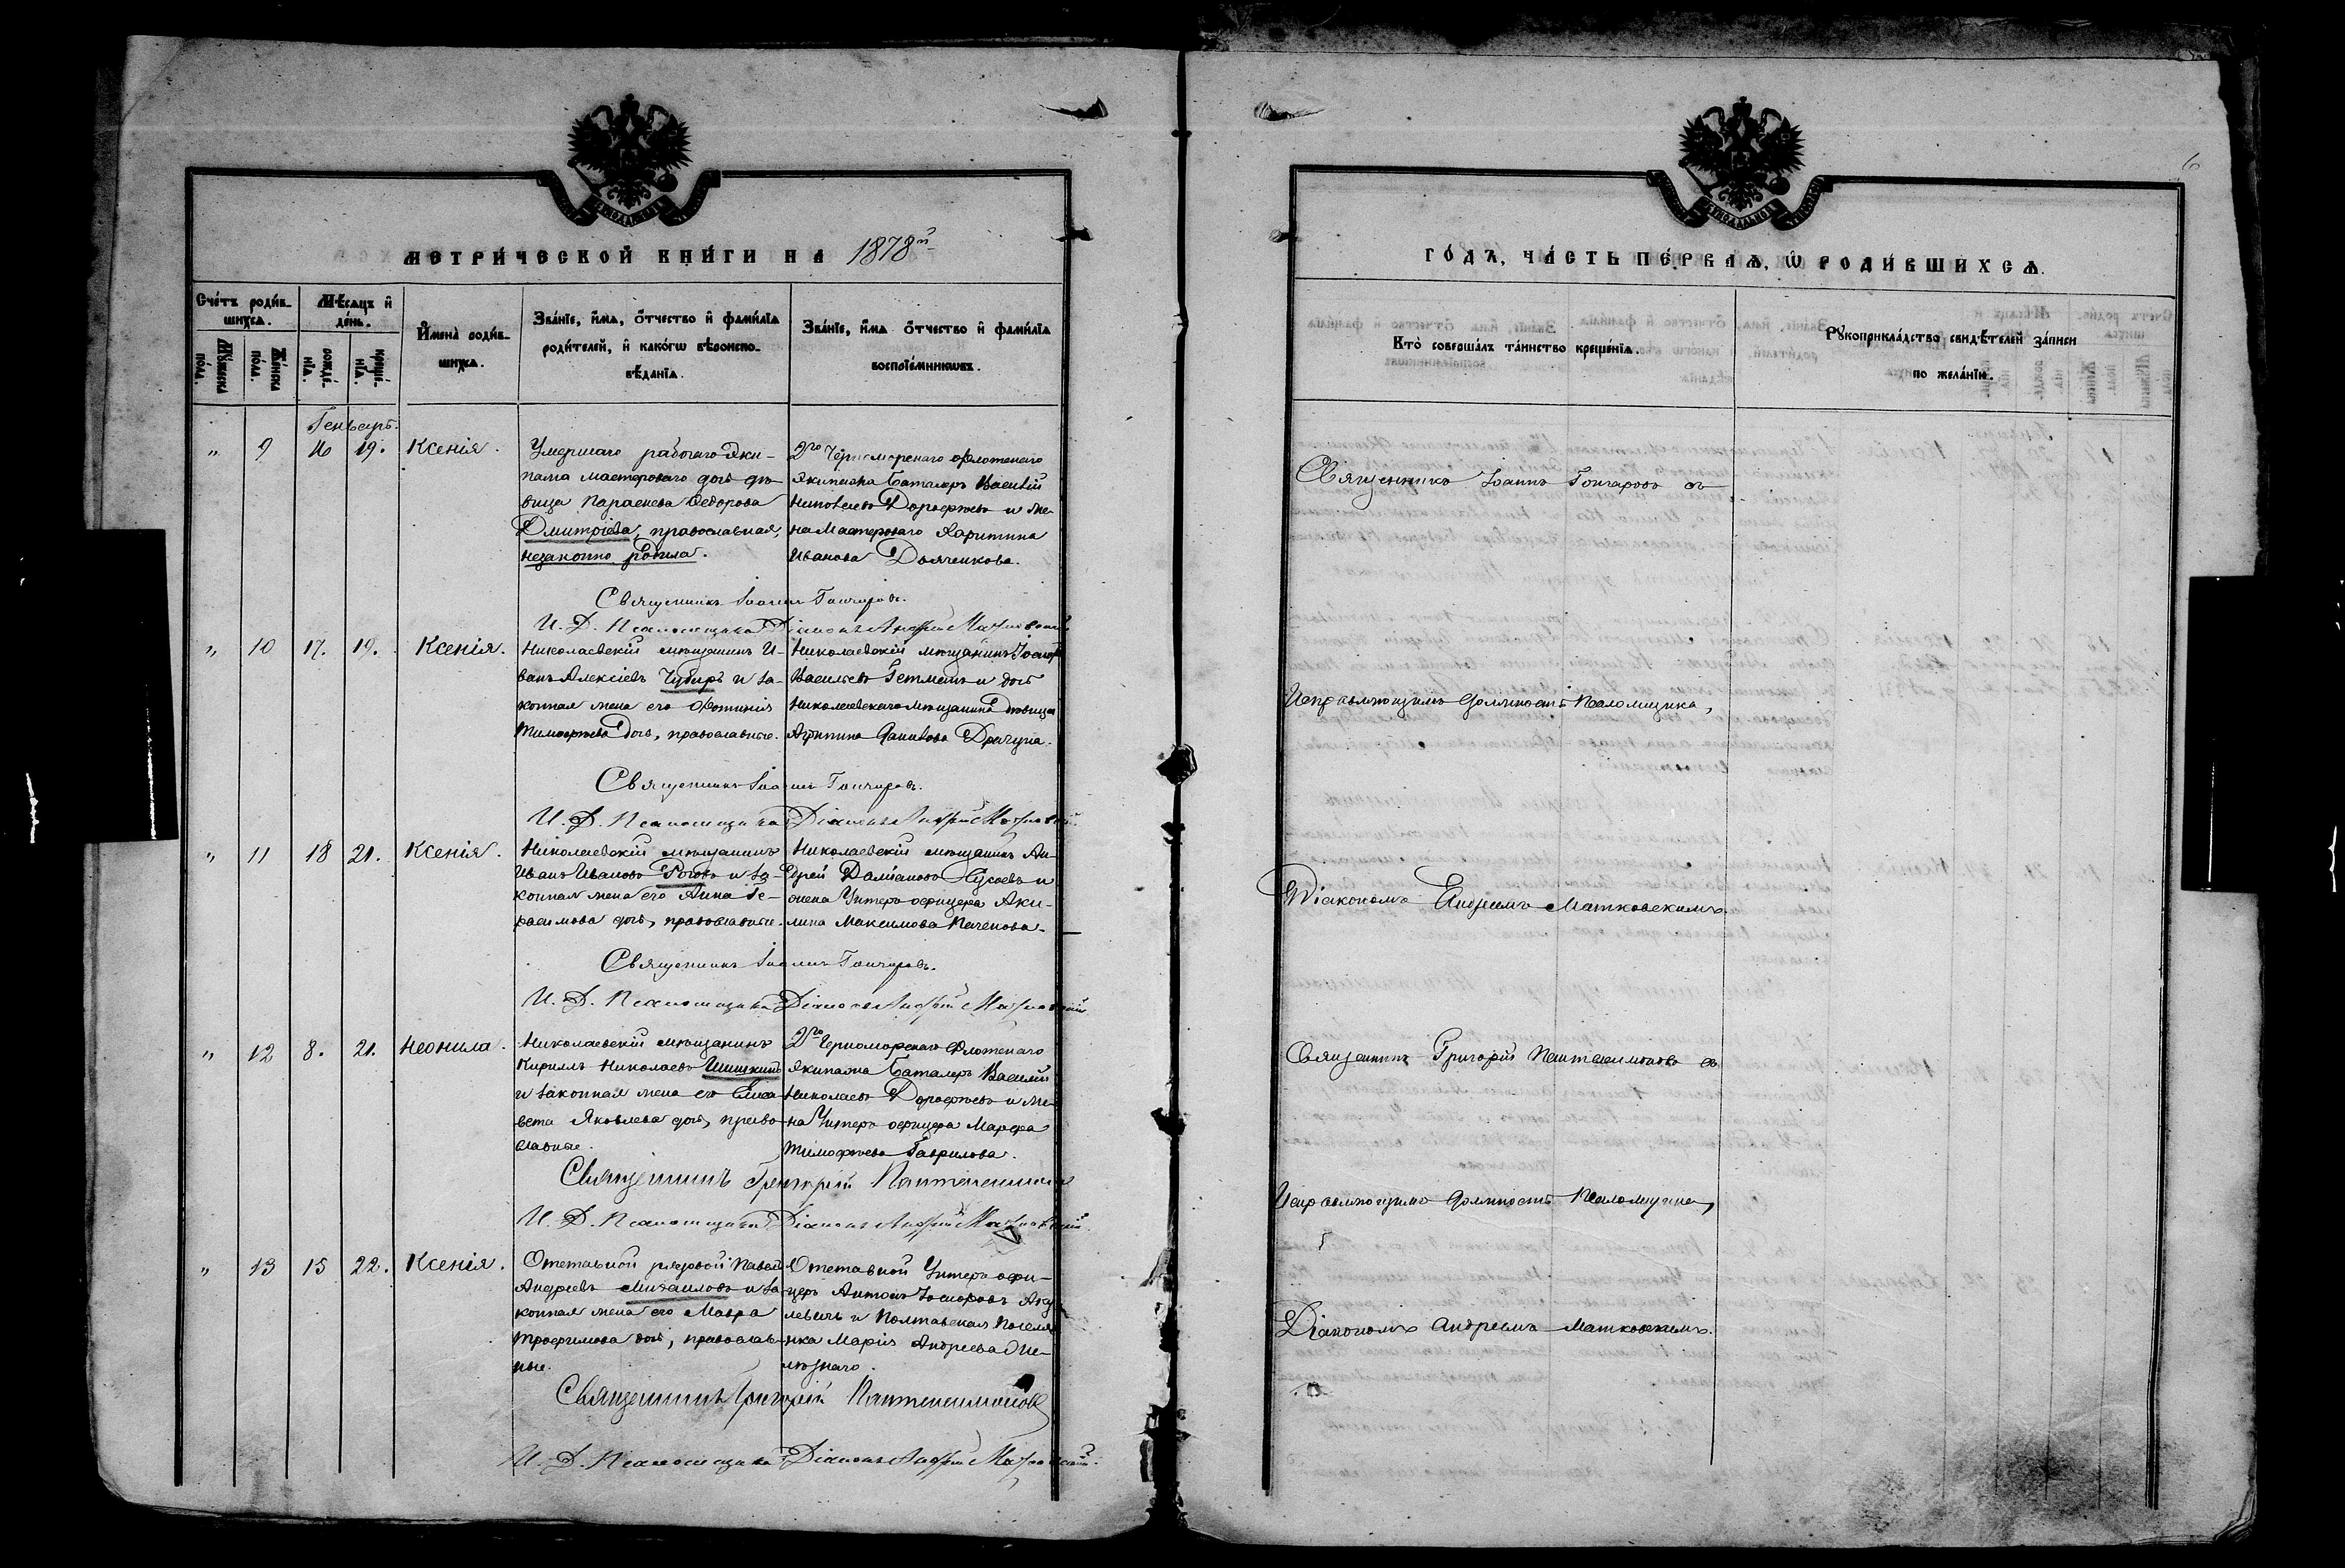 МЕТРИ́ЧЕСКОЙ КНИ́ГИ НА 1878й
Сче́тъ роди́в-
шихсѧ.
Мѣ́сѧцъ и҆
де́нь.
Мꙋ́жеска
по́ла.
Же́нска
по́ла.
рожде́-
нїѧ.
креще́-
нїѧ.
И҆мена̀ роди́в-
шихсѧ.
Зва́нїе, и҆́мѧ, о҆́тчество и҆ фами́лїѧ
роди́телей, и҆ како́гѡ вѣроиспо-
вѣ́данїѧ.
Зва́нїе, и҆́мѧ о҆́тчество и҆ фами́лїѧ
воспрїе́мникѡвъ.
Генварь.
„ 9 16 19. Ксенія.
Умершаго рабочаго эки-
пажа мастероваго дочь дѣ-
вица Параскева Ѳедорова
Дмитріева, православная,
незаконно родила.
2го Черноморскаго флотскаго
экипажа Баталеръ Василій
Николаевъ Дорофѣевъ и же-
на Мастероваго Харитина
Иванова Дьяченкова.
Священникъ Іоаннъ Гончаровъ.
И. Д. Псаломщика Діаконъ Андрей Матковскій
„ 10 17. 19. Ксенія.
Николаевскій мѣщанинъ И-
ванъ Алексіевъ Чубарь и за-
конная жена его Фотинія
Тимофѣева дочь, православные.
Николаевскій мѣщанинъ Іосифъ
Васильевъ Гетманъ и дочь
Николаевскаго мѣщанина дѣвица
Агрипина Данилова Драгуна.
Священникъ Іоаннъ Гончаровъ.
И. Д. Псаломщика Діаконъ Андрей Матковскій
„ 11 18 21. Ксенія.
Николаевскій мѣщанинъ
Иванъ Ивановъ Роговъ и за-
конная жена его Анна Ге-
расимова дочь, православные.
Николаевскій мѣщанинъ Ан-
дрей Даміановъ Сусаевъ и
жена Унтеръ офицера Аки-
лина Максимова Паченова.
Священникъ Іоаннъ Гончаровъ.
И. Д. Псаломщика Діаконъ Андрей Матковскій
„ 12 8. 21. Неонила.
Николаевскій мѣщанинъ
Кириллъ Николаевъ Шишкинъ
и законная жена его Елиса-
вета Яковлева дочь, право-
славные.
2го Черноморскаго Флотскаго
экипажа Баталеръ Василій
Николаевъ Дорофѣевъ и же-
на Унтеръ офицера Марфа
Тимофѣева Гаврилова.
Священникъ Григорій Пантелеимоновъ
И. Д. Псаломщика Діаконъ Андрей Матковскій.
„ 13 15 22. Ксенія.
Отставной рядовой Павелъ
Андреевъ Михаиловъ и за-
конная жена его Мавра
Трофимова дочь, православ-
ные.
Отставной Унтеръ офи-
церъ Антонъ Іосифовъ
и Полтавская поселян-
ка Марія Андреева
Священникъ Григорій Пантелеимоновъ
И. Д. Псаломщика Діаконъ Андрей Матковскій.
6
ГО́ДЪ, ЧА́СТЬ ПЕ́РВАѦ, Ѡ РОДИ́ВШИХСѦ.
Кто̀ соверша́лъ та́инство креще́нїѧ.
Рꙋкоприкла́дство свидѣ́телей за́писи
по жела́нїю.
Священникъ Іоаннъ Гончаровъ съ
Исправляющимъ должность Псаломщика,
Діакономъ Андреемъ Матковскимъ.
Священникъ Григорій Пантелеимоновъ съ
Исправляющимъ должность Псаломщика,
Діакономъ Андреемъ Матковскимъ.